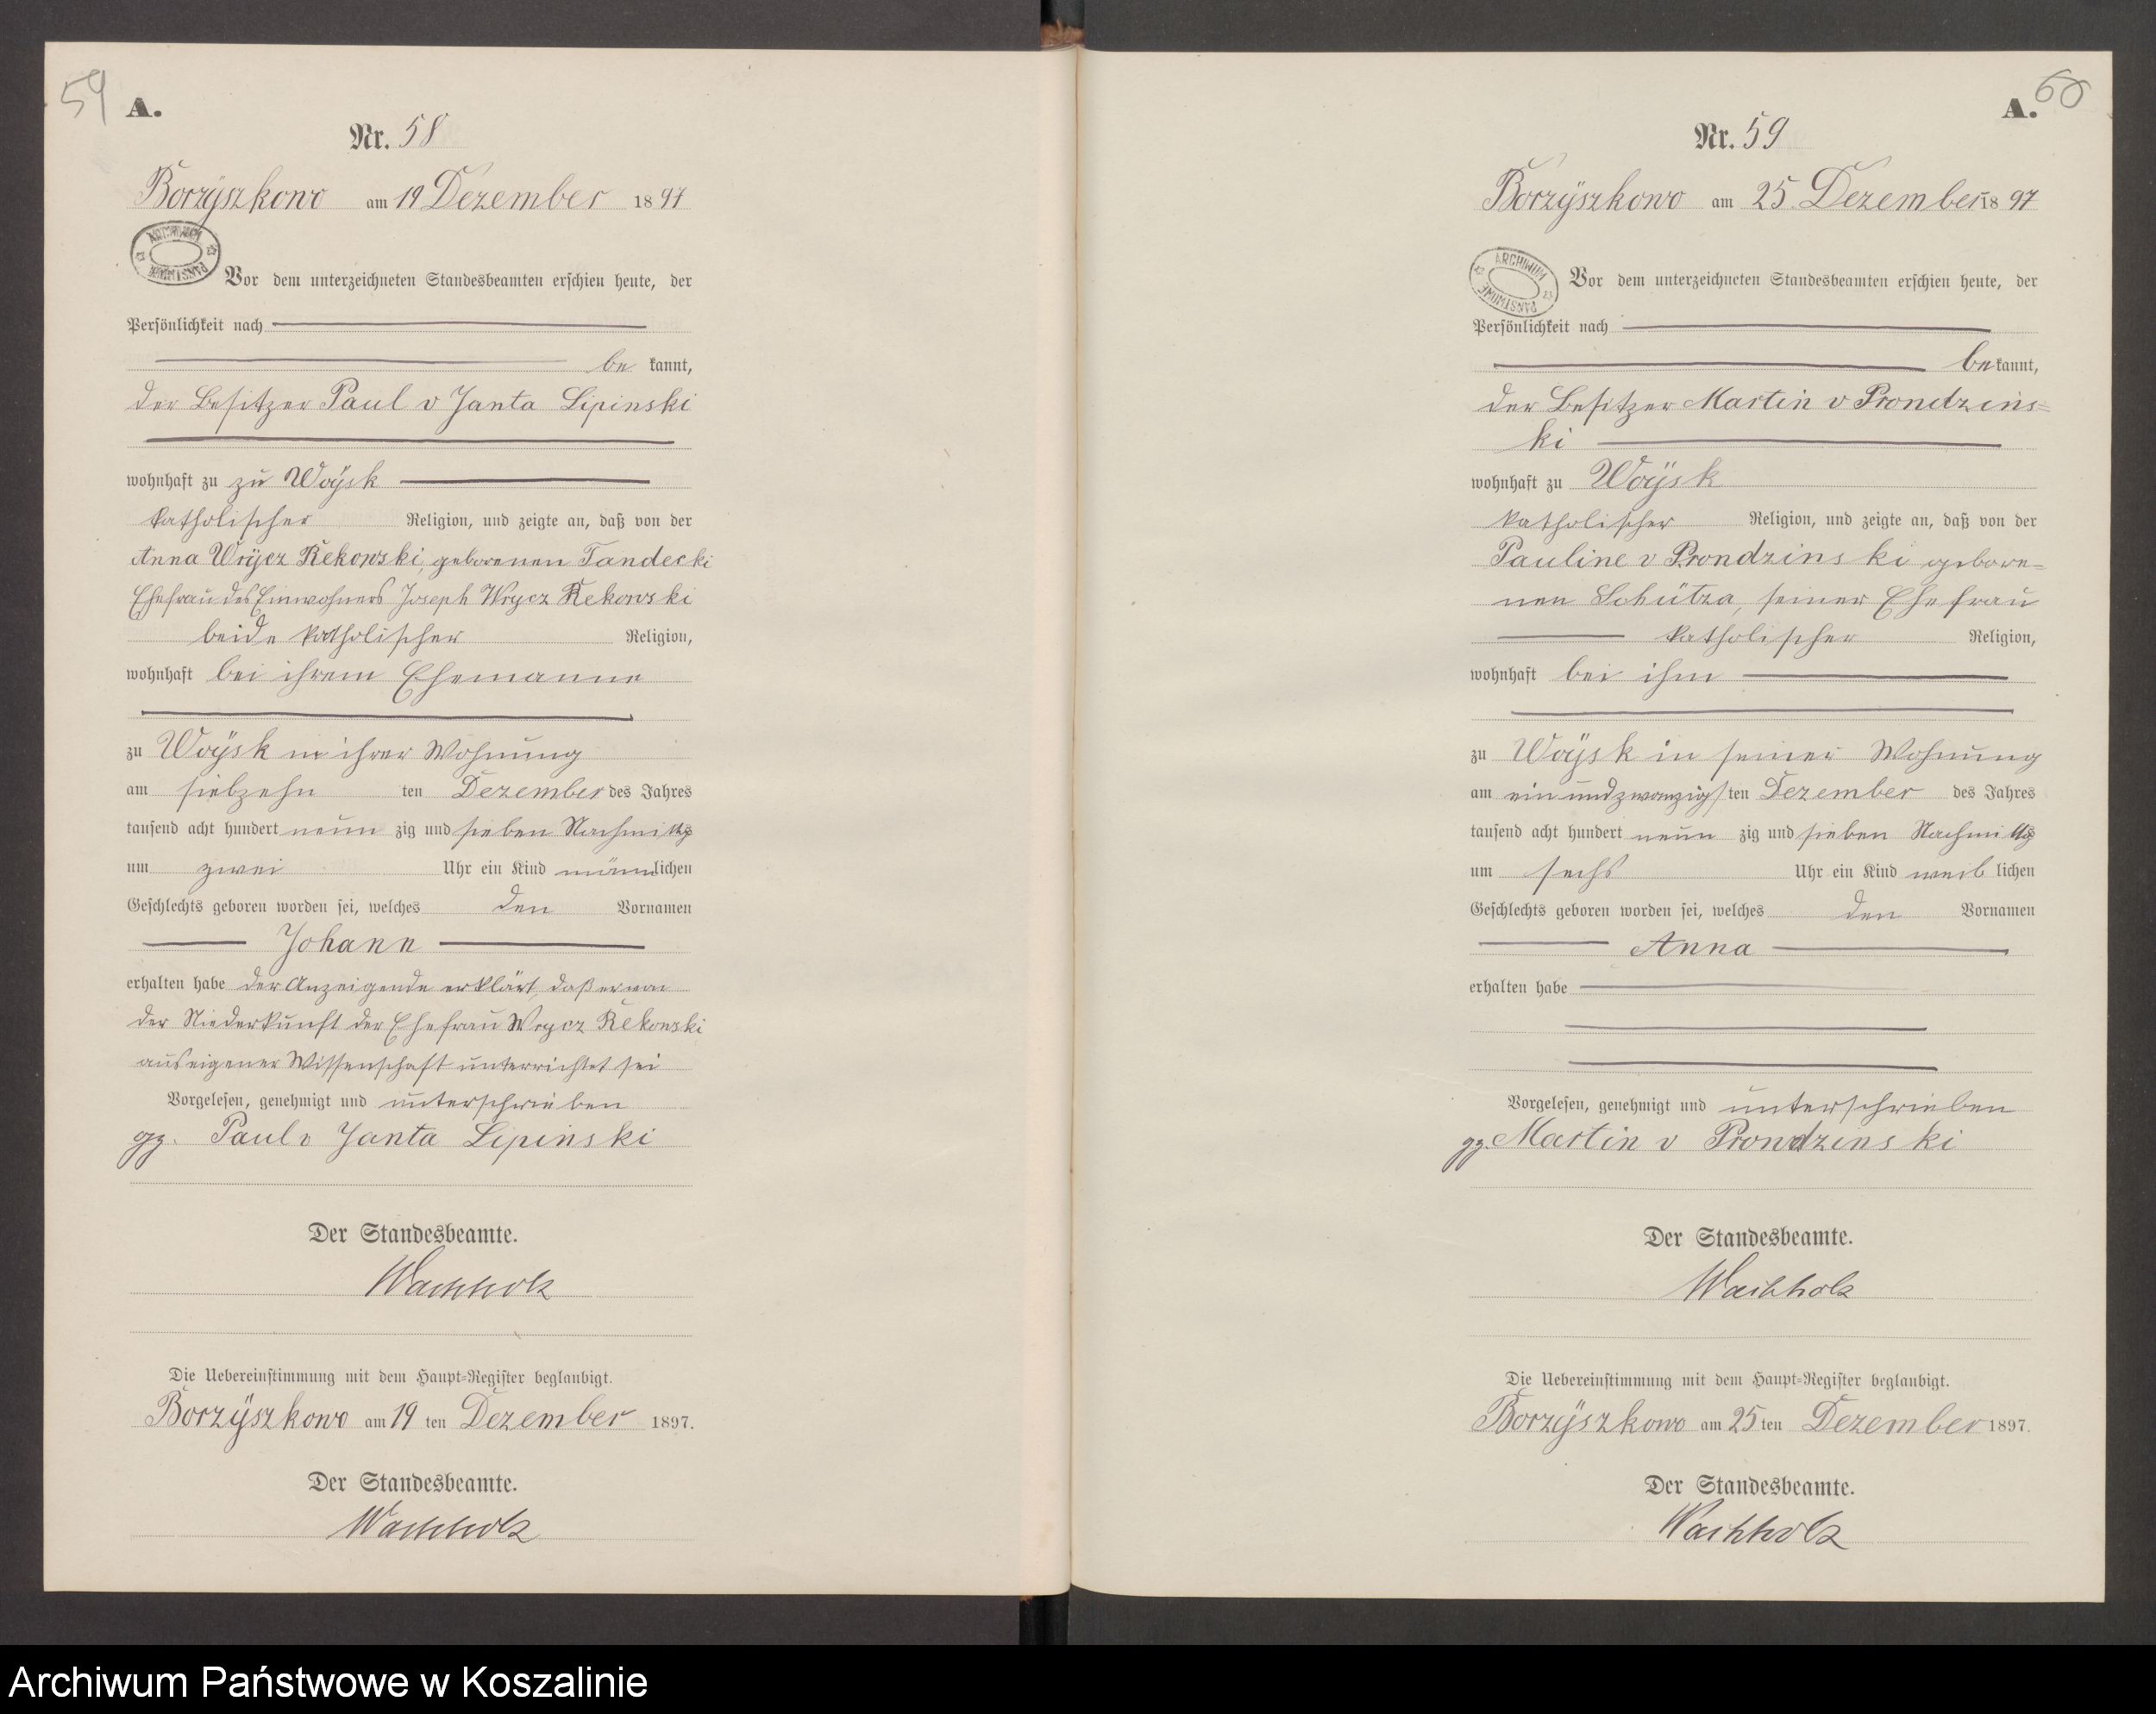 59
A.
Nr. 58
Borzÿszkowo am 19 Dezember 1897
ARCHIWUM PAŃSTWOWE
Vor dem unterzeichneten Standesbeamten erschien heute, der
Persönlichkeit nach
be kannt,
der Besitzer Paul v Janta Lipinski
wohnhaft zu zu Woÿsk
katholischer Religion, und zeigte an, daß von der
Anna Wrÿcz Rekowski, geborenen Tandecki
Ehefrau des Einwohners Joseph Wrycz Rekowski
beide katholischer Religion,
wohnhaft bei ihrem Ehemanne
zu Woÿsk in ihrer Wohnung
am siebzehn ten Dezember des Jahres
tausend acht hundert neun zig und sieben Nachmittags
um zwei Uhr ein Kind männlichen
Geschlechts geboren worden sei, welches den Vornamen
Johann
erhalten habe der Anzeigende erklärt, daß er von
der Niederkunft der Ehefrau Wrycz Rekowski
aus eigener Wissenschaft unterrichtet sei
Vorgelesen, genehmigt und unterschrieben
gz. Paul v Janta Lipinski
Der Standesbeamte.
Wachholz
Die Uebereinstimmung mit dem Haupt=Register beglaubigt.
Borzÿszkowo am 19 ten Dezember 1897.
Der Standesbeamte.
Wachholz
60
A.
Nr. 59
Borzÿszkowo am 25. Dezember 1897
ARCHIWUM PAŃSTWOWE
Vor dem unterzeichneten Standesbeamten erschien heute, der
Persönlichkeit nach
be kannt,
der Besitzer Martin v Prondzins=
ki
wohnhaft zu Woÿsk
katholischer Religion, und zeigte an, daß von der
Pauline v Prondzinski gebore=
nen Schütza, seiner Ehefrau
katholischer Religion,
wohnhaft bei ihm
zu Woÿsk in seiner Wohnung
am ein und zwanzigsten Dezember des Jahres
tausend acht hundert neun zig und sieben Nachmittags
um sechs Uhr ein Kind weib lichen
Geschlechts geboren worden sei, welches den Vornamen
Anna
erhalten habe
Vorgelesen, genehmigt und unterschrieben
gz. Martin v Prondzinski
Der Standesbeamte.
Wachholz
Die Uebereinstimmung mit dem Haupt=Register beglaubigt.
Borzÿszkowo am 25 ten Dezember 1897.
Der Standesbeamte.
Wachholz
Archiwum Państwowe w Koszalinie